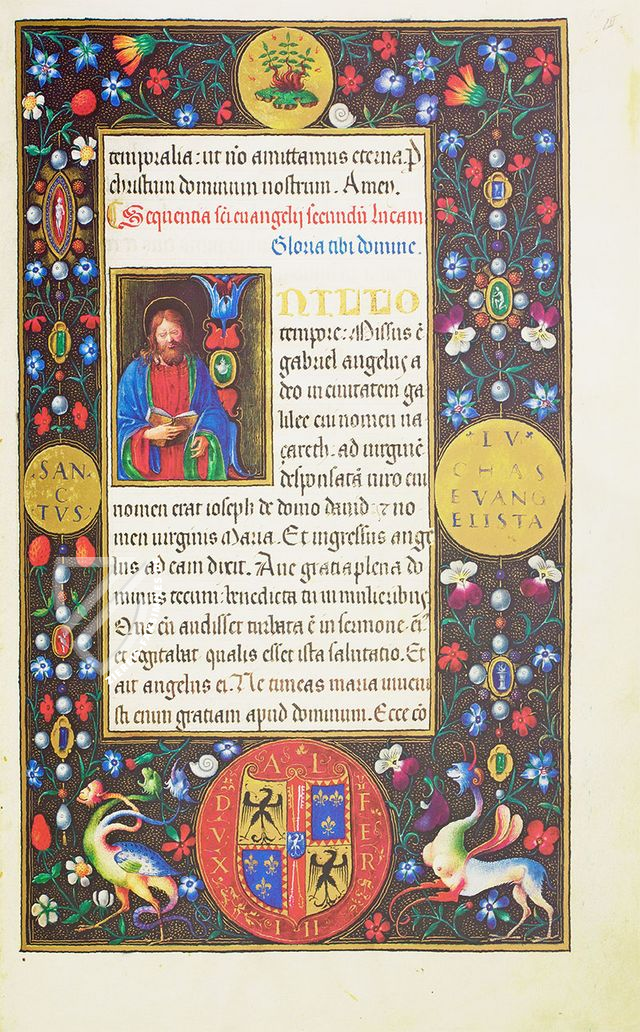 temporalia: ut nō amittamus eterna. P
christum dominum nostrum. Amen.
Sequentia sc̄i euangelij secundū Lucam
Gloria tibi domine.
N ILLO
tempore: Missus ē
gabriel angelus a
deo in ciuitatem ga
lilee cui nomen na
çareth: ad uirginē
desponsatā uiro cui
nomen erat ioseph de domo dauid: ⁊ no
men uirginis Maria. Et ingressus ange
lus ad eam dixit. Aue gratia plena do
minus tecum: benedicta tu in mulieribus
Que cū audisset turbata ē in sermone. ei
et cogitabat qualis esset ista salutatio. Et
ait angelus ei. Ne timeas maria inueni
sti enim gratiam apud dominum. Ecce cō
SAN
C
TVS
LV
CHAS
EVANG
ELISTA
ALFER
DVX
II